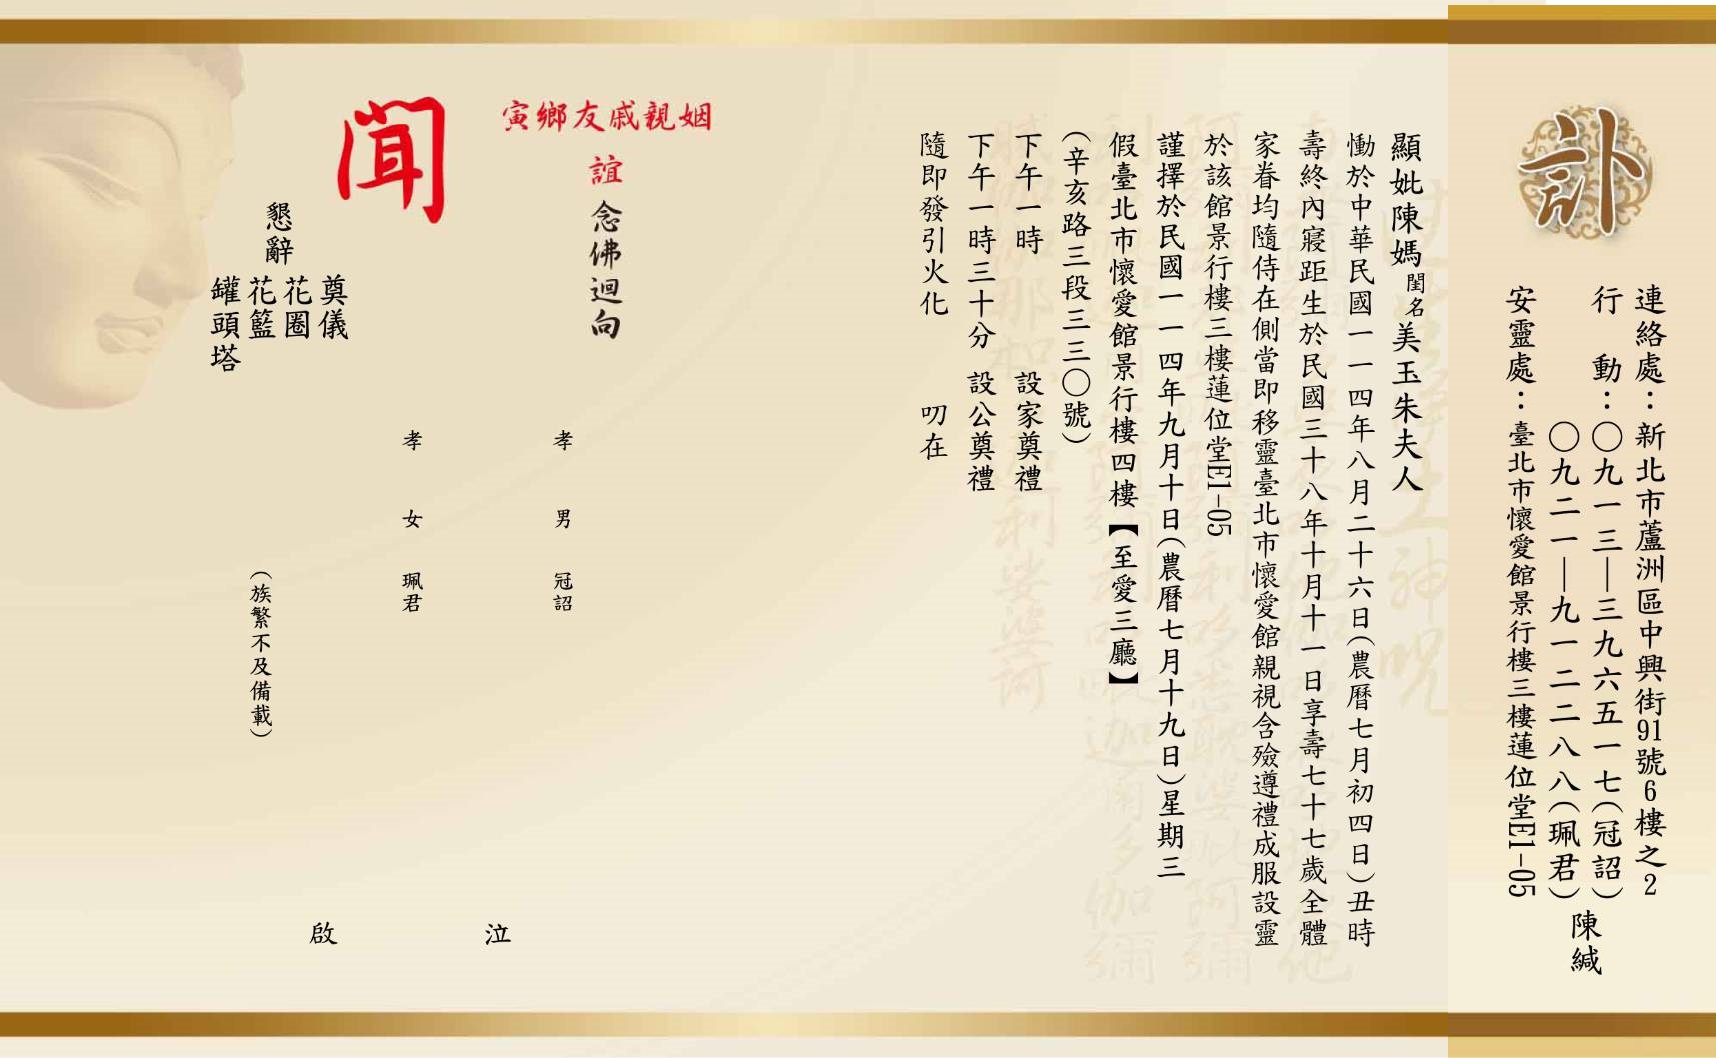 訃
連絡處：新北市蘆洲區中興街91號6樓之2
行動：〇九一三—三九六五一七(冠詔)
〇九二一—九一二二八八(珮君)
安靈處：臺北市懷愛館景行樓三樓蓮位堂E1-05
陳緘
顯妣陳媽閨名美玉朱夫人
慟於中華民國一一四年八月二十六日(農曆七月初四日)丑時
壽終內寢距生於民國三十八年十月十一日享壽七十七歲全體
家眷均隨侍在側當即移靈臺北市懷愛館親視含殮遵禮成服設靈
於該館景行樓三樓蓮位堂E1-05
謹擇於民國一一四年九月十日(農曆七月十九日)星期三
假臺北市懷愛館景行樓四樓【至愛三廳】
(辛亥路三段三三〇號)
下午一時　設家奠禮
下午一時三十分　設公奠禮
隨即發引火化　叨在
姻親戚友鄉寅
誼念佛迴向
聞
孝男冠詔
孝女珮君
(族繁不及備載)
泣
啟
懇辭
奠儀
花圈
花籃
罐頭塔